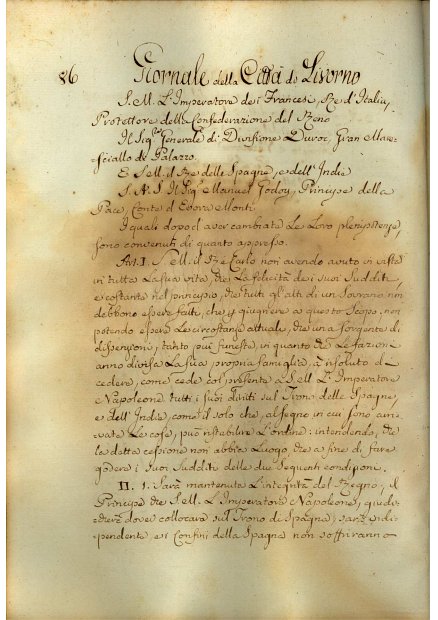 86
Giornale della Città di Livorno
S. M. L'Imperatore de i Francesi, Re d'Italia,
Protettore della Confederazione del Reno
Il Sig.r Generale di Divisione Duroc, Gran Mare-
sciallo di Palazzo.
E S. e M. il Re delle Spagne, e dell'Indie
S. A. S. Il Sig.r Emanuel Godoy, Principe della
Pace, Conte d'Evora Monti.
I quali dopo d'aver cambiate Le Loro plenipotenze,
sono convenuti di quanto appresso.
Art. I. S. e M. il Re Carlo non avendo avuto in vista
in tutta La sua vita, che La felicità de i suoi Sudditi,
e costante nel principio, che tutti gli atti di un Sovrano non
debbono essere fatti, che p giugnere a questo Scopo, non
potendo essere Le circostanze attuali, che una sorgente di
dissensioni, tanto più funeste, in quanto che Le fazioni
anno divisa La sua propria famiglia, à risoluto di
cedere, come cede col presente a S. e M. L'Imperatore
Napoleone tutti i suoi diritti sul Trono delle Spagne,
e dell'Indie, come il solo che, al segno in cui sono arri-
vate Le cose, può ristabilire L'ordine: intendendo, che
La detta cessione non abbia Luogo, che a fine di fare
godere i suoi Sudditi delle due seguenti condizioni.
II. 1. Sarà mantenuta L'integrità del Regno; il
Principe che S. e M. L'Imperatore Napoleone giudi-
cherà dover collocare sul Trono di Spagna, sarà indi-
pendente, e i Confini della Spagna non soffriranno